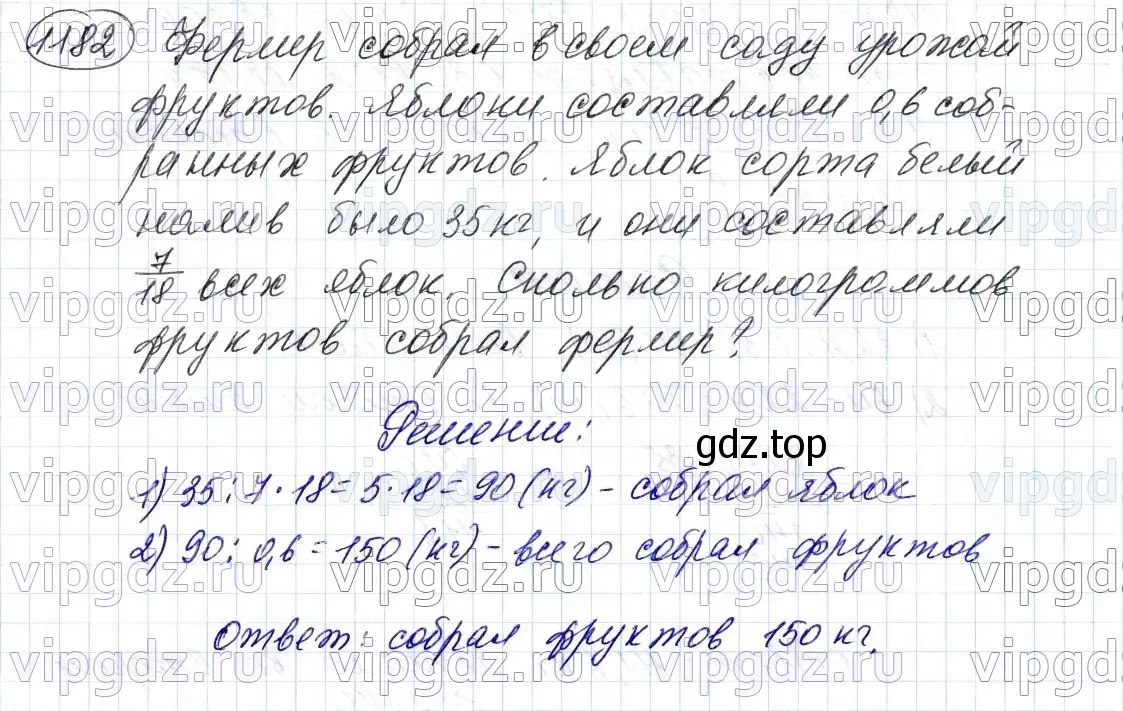 1182 Фермер собрал в своем саду урожай
фруктов. Яблоки составляли 0,6 соб-
ранных фруктов. Яблок сорта белый
налив было 35 кг, и они составляли
7/18 всех яблок. Сколько килограммов
фруктов собрал фермер?
Решение:
gdz.top
1) 35 : 7 · 18 = 5 · 18 = 90 (кг) - собрал яблок
2) 90 : 0,6 = 150 (кг) - всего собрал фруктов
Ответ: собрал фруктов 150 кг.
vipgdz.ru